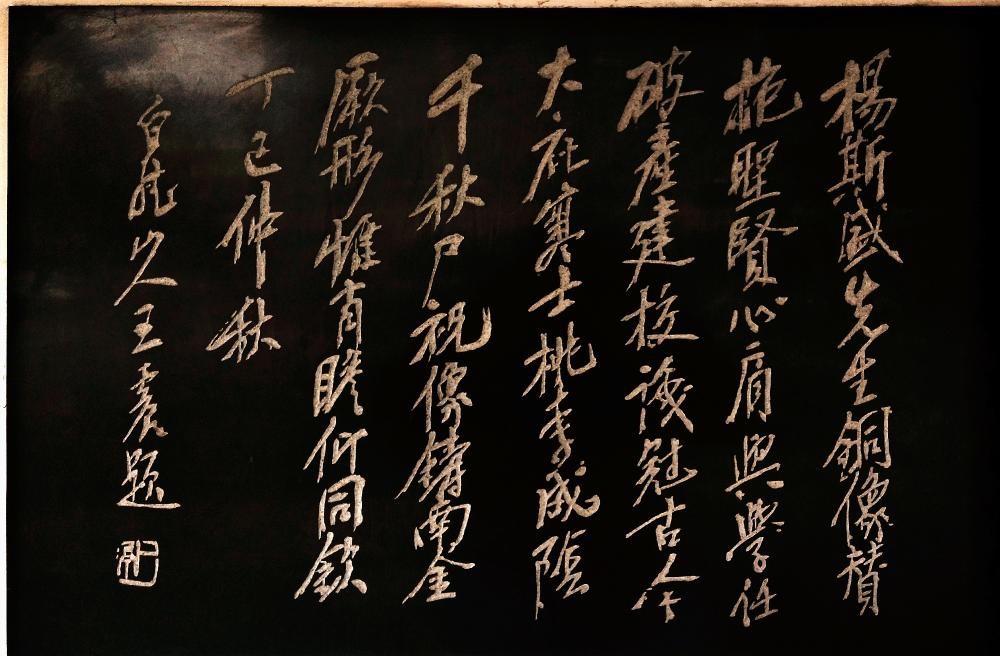 楊斯盛先生銅像贊
抱聖賢心肩興學任
破產建校議冠古今
大庇寒士桃李成蔭
千秋尸祝像鑄南金
厥形惟肖瞻仰同欽
丁巳仲秋
白龍山人王震題